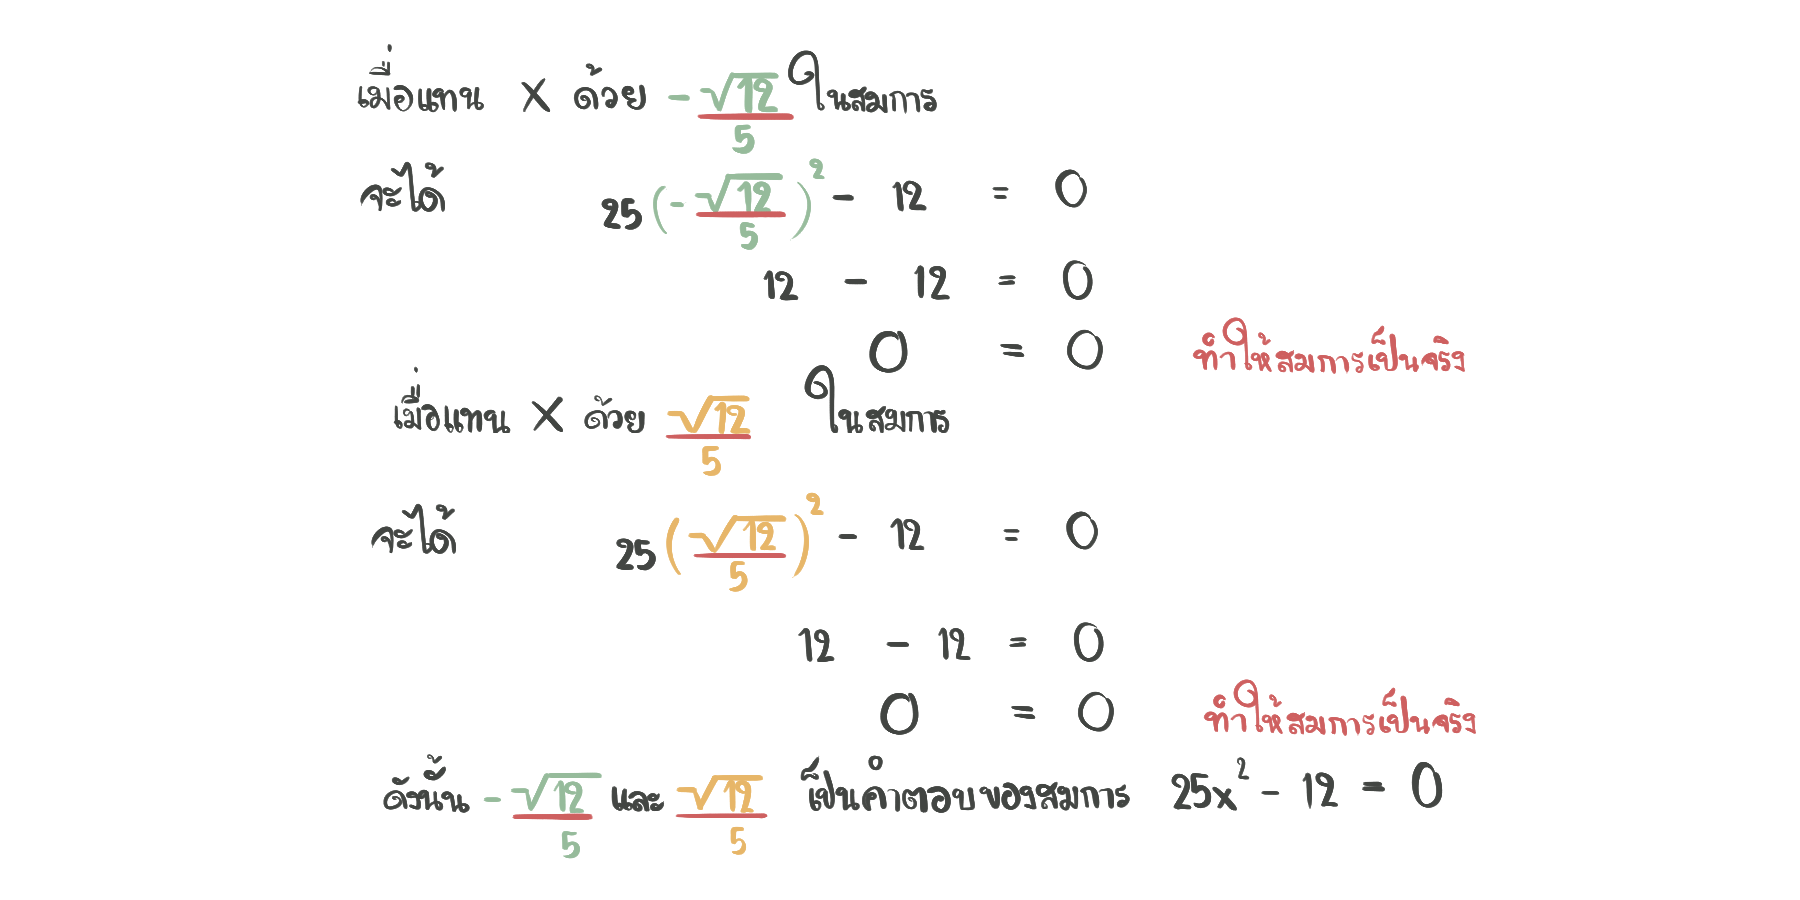 เมื่อแทน x ด้วย -√12/5 ในสมการ
จะได้ 25(-√12/5)² - 12 = 0
12 - 12 = 0
0 = 0 ทำให้สมการเป็นจริง
เมื่อแทน x ด้วย √12/5 ในสมการ
จะได้ 25(√12/5)² - 12 = 0
12 - 12 = 0
0 = 0 ทำให้สมการเป็นจริง
ดังนั้น -√12/5 และ √12/5 เป็นคำตอบของสมการ 25x² - 12 = 0